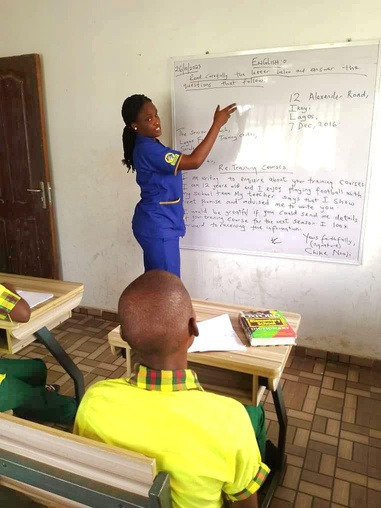 English
Read carefully the letter below and answer the
questions that follow
12 Alexander Road,
Ikoyi
Lagos,
7 Dec, 2016
Re: Training Courses
writing to enquire about your training courses
I am 12 years old and I enjoy playing football with
my school team. My teacher says that I show
promise and advised me to write you
would be grateful if you could send me details
your training course for the next season. I look
forward to receiving the information.
Yours faithfully,
(signature)
Chike